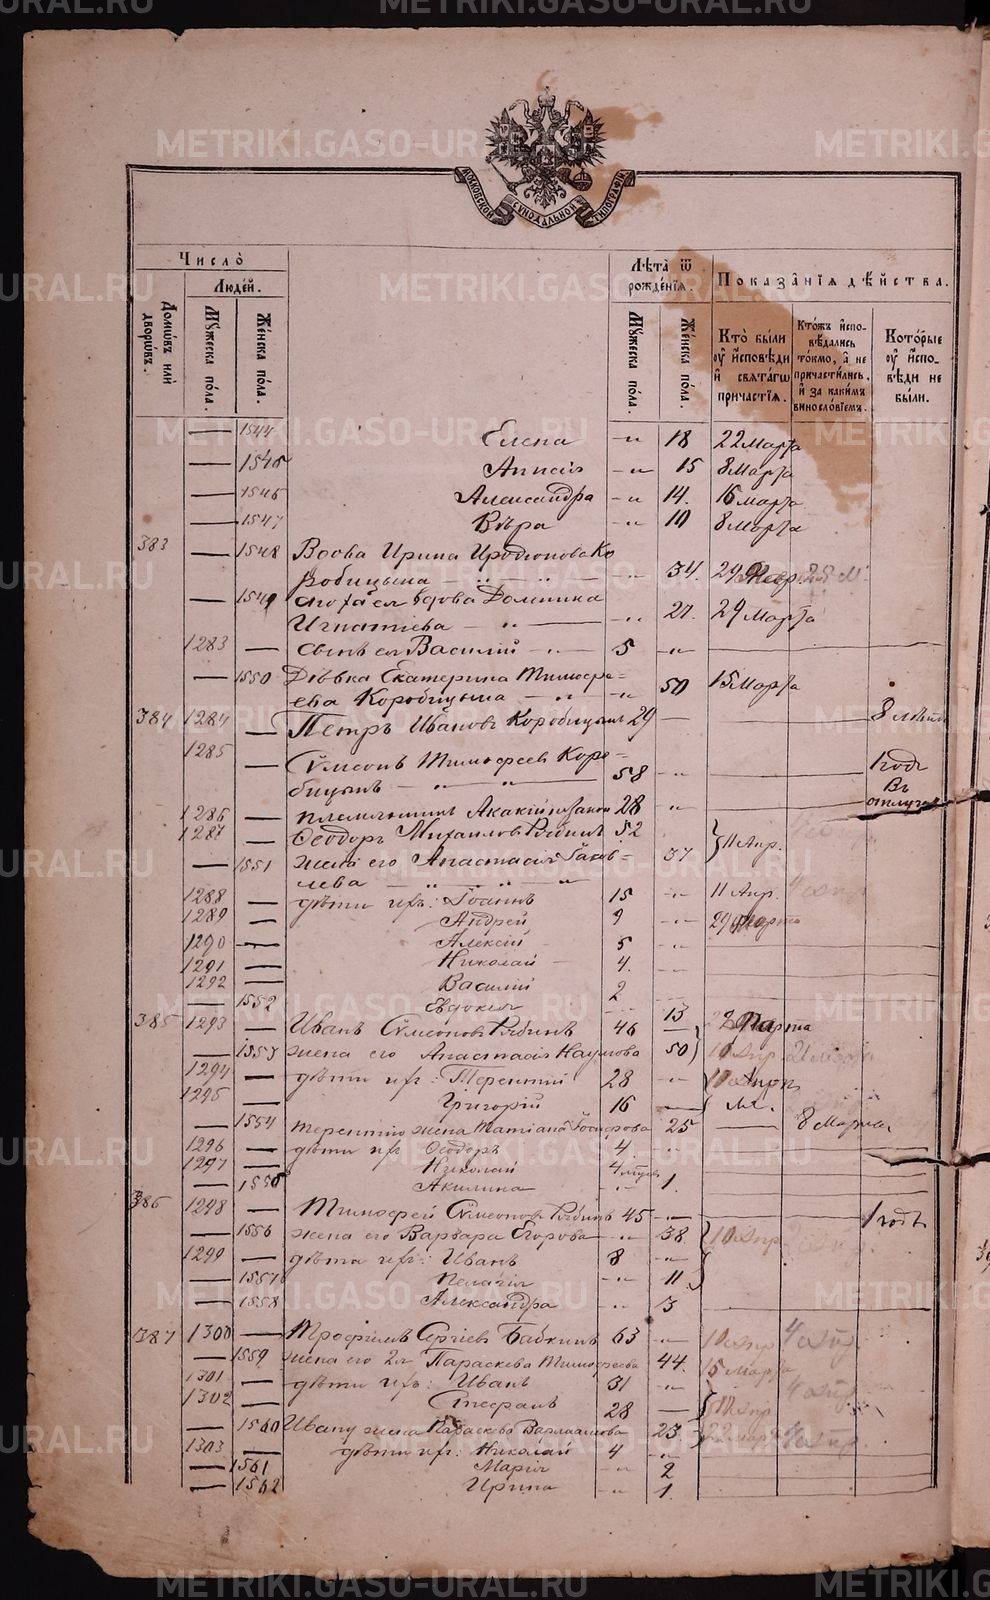 METRIKI.GASO-URAL.RU
МОСКОВСКОЙ СѴНОДАЛЬНОЙ ТИПОГРАФІИ
Число̀
Людей.
Домѡвъ или дворѡвъ.
Мꙋжеска пола.
Женска пола.
Лѣта ѿ рожденїѧ.
Мꙋжеска пола.
Женска пола.
Показанїѧ дѣйства.
Кто были ꙋ исповѣди и свѧтагѡ причастїѧ.
Ктожъ исповѣдались токмо, а не причастились, и за какимъ винословїемъ.
Которые ꙋ исповѣди не были.
— 1544 Елена -"- 18 22 Марта
— 1545 Аннсія -"- 15 8 Марта
— 1546 Александра -"- 14. 16 Марта
— 1547 Вѣра -"- 10 8 Марта
383 — 1548 Вдова Ирина Иродіонова Ко
робицына 34. 29
— 1549 сноха ея вдова Домника
Игнатіева 29 Марта
1283 — сынъ ея Василій 5 -"-
— 1550 Дѣвка Екатерина Тимофе-
ева Коробицына 50 15 Марта
384 1284 — Петръ Ивановъ Коробицынъ 29 — 8 лѣтъ
1285 — Сѵмеонъ Тимофеевъ Коро-
бицынъ 58 -"- 1 годъ
въ отлучкѣ
1286 — племянникъ Акакій 28 -"-
1287 — Ѳеодоръ Михаиловъ Рябинъ 52
— 1551 жена его Анастасія Іаков-
лева 37 11 Апр.
1288 — дѣти ихъ: Іоаннъ 15 -"- 11 Апр.
1289 — Андрей 9 -"- 29 Марта
1290 — Алексій 5 -"-
1291 — Николай 4. -"-
1292 — Василій 2
— 1552 Евдокія 13
385 1293 — Иванъ Сѵмеоновъ Рябинъ 46 —
— 1553 жена его Анастасія Наумова 50 10 Апр
1294 — дѣти ихъ: Терентій 28 -"-
1295 — Григорій 16 —
— 1554 Терентію жена Татіана 25 — 8 Марта
1296 — дѣти ихъ Ѳеодоръ 4.
1297 — Николай
— 1555 Акилина 1.
386 1298 — Тимофей Сѵмеоновъ Рябинъ 45 — 1 годъ
— 1556 жена его Варвара Егорова 38 10 Апр
1299 — дѣти ихъ: Иванъ 8 -"-
— 1557 Пелагія 11
— 1558 Александра 3
387 1300 — Трофимъ Сергіевъ Бабкинъ 63 -"- 10 Апр
— 1559 жена его 2я Параскева Тимофеева 44. 15 Марта
1301 — дѣти ихъ: Иванъ 31 -"-
1302 — Стефанъ 28 —
— 1560 Ивану жена Параскева Варлаамова 23
1303 — дѣти ихъ: Николай 4 -"-
— 1561 Марія -"- 2
— 1562 Ирина -"- 1.